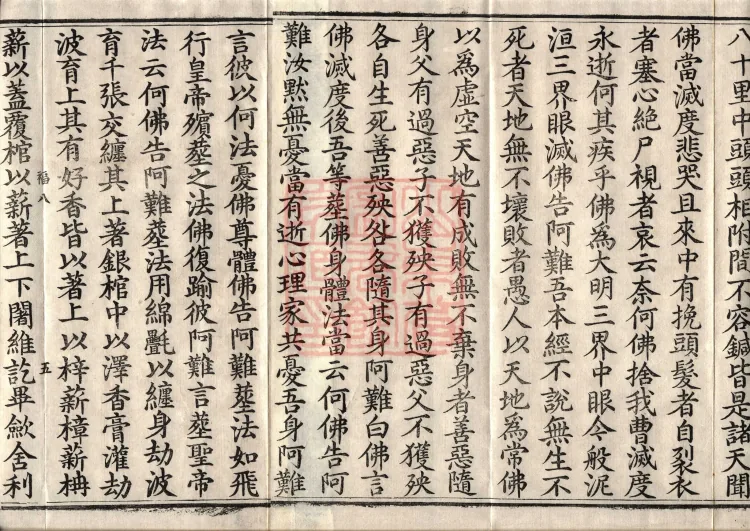 八十里中頭頭相附間不容鍼皆是諸天聞
佛當滅度悲哭且來中有挽頭髮者自裂衣
者塞心絶尸視者哀云奈何佛捨我曹滅度
永逝何其疾乎佛爲大明三界中眼今般泥
洹三界眼滅佛告阿難吾本經不說無生不
死者天地無不壞敗者愚人以天地爲常佛
以爲虛空天地有成敗無不棄身者善惡隨
身父有過惡子不獲殃子有過惡父不獲殃
各自生死善惡殃咎各隨其身阿難白佛言
佛滅度後吾等塟佛身體法當云何佛告阿
難汝默無憂當有逝心理家共憂吾身阿難
言彼以何法憂佛尊體佛告阿難塟法如飛
行皇帝殯塟之法佛復踰彼阿難言塟聖帝
法云何佛告阿難塟法用綿㲲以纏身劫波
育千張交纏其上著銀棺中以澤香膏灌劫
波育上其有好香皆以著上以梓薪樟薪栴
福八 五
薪以蓋覆棺以薪著上下闍維訖畢歛舍利